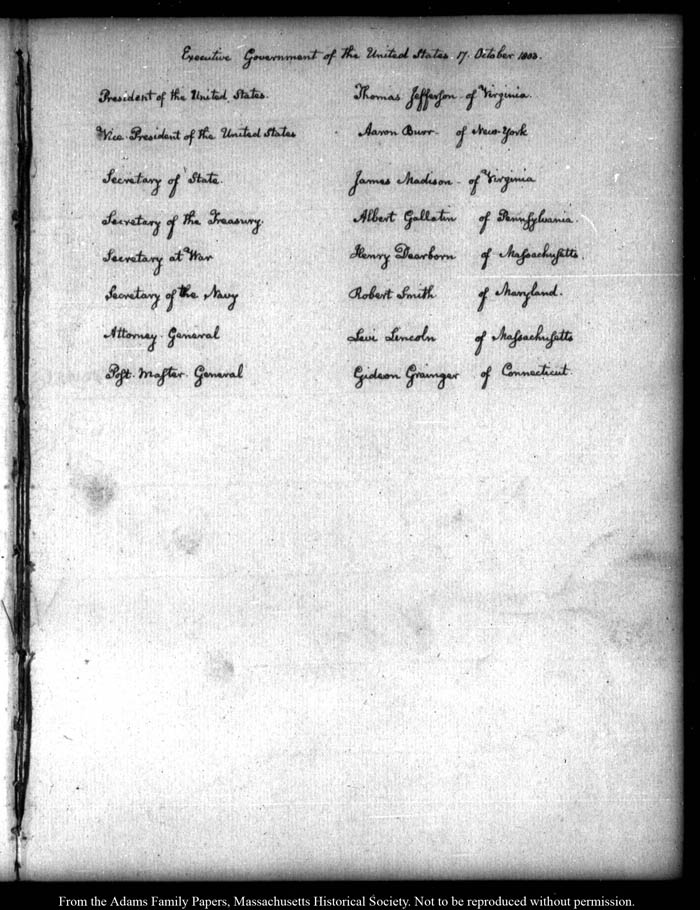 Executive Government of the United States. 17. October 1803.
President of the United States. Thomas Jefferson of Virginia.
Vice President of the United States Aaron Burr of New-York
Secretary of State. James Madison of Virginia
Secretary of the Treasury. Albert Gallatin of Pennsylvania.
Secretary at War Henry Dearborn of Massachusetts.
Secretary of the Navy Robert Smith of Maryland.
Attorney General Levi Lincoln of Massachusetts
Post Master General Gideon Grainger of Connecticut.
From the Adams Family Papers, Massachusetts Historical Society. Not to be reproduced without permission.